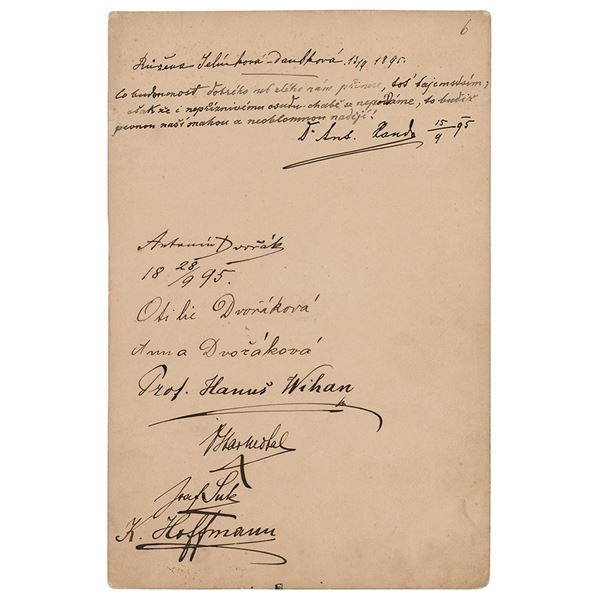 6
Růžena Jelínková-Daňková 13/9 1895.
Co budoucnost dobrého neb zlého nám přinese, toť tajemstvím;
však že i nepříznivému osudu chabě se nepodáme, to budiž
pevnou naší snahou a neoblomnou nadějí!
Dr Ant. Randa 15/9 95
Antonín Dvořák
18 28/9 95.
Otilie Dvořáková
Anna Dvořáková
Prof. Hanuš Wihan
Josef Suk
K. Hoffmann